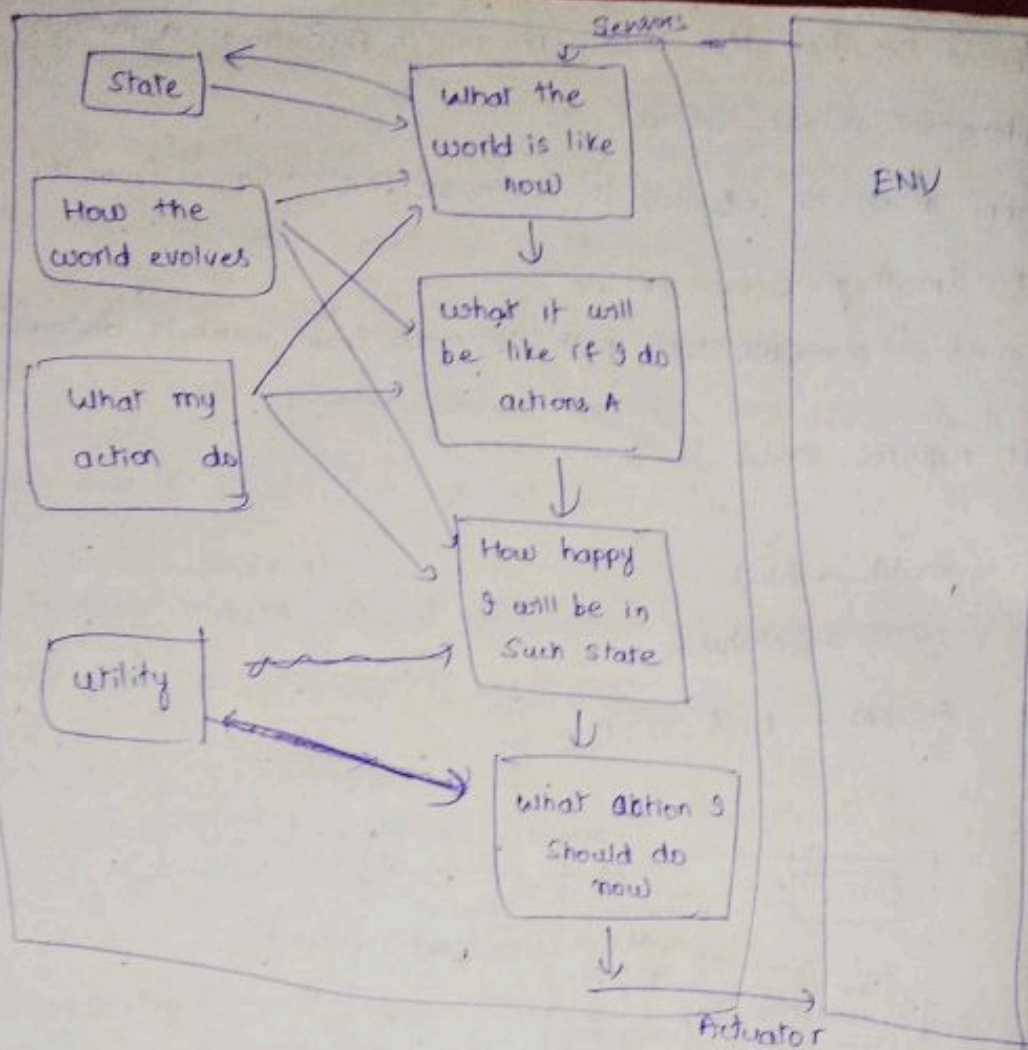 Sensors
State
What the
world is like
now
ENV
How the
world evolves
What it will
be like if I do
actions A
What my
action do
How happy
I will be in
Such state
Utility
What action I
Should do
now
Actuator